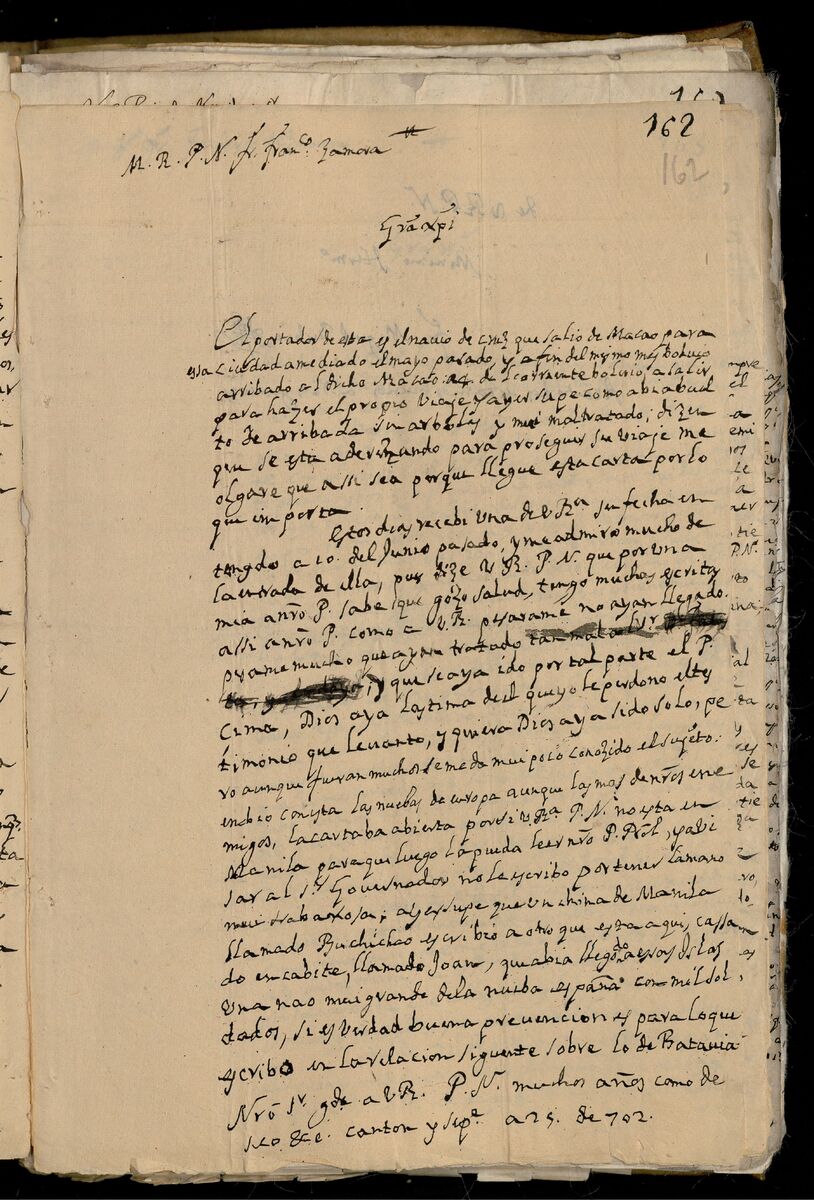 162
162
M. R. P. N. fr. Franco. Zamora
Gra xpi
El portador de esta es el nauio de Cruz que salio de Macao para
essa Ciudad amediado el mayo pasado, y a fin del mysmo mes boluio
arribado al dicho Macao: del corriente boluio, a salir
para hazer el propio viaje y ayer supe como abia buel
to de arribada sin arboles y mui maltratado; dizen
que se esta aderezando para proseguir su viaje me
olgare que assi sea porque llegue esta carta por lo
que importa.
Estos dias recebi una de V Ra. su fecha en
a 10. del Junio pasado, y me admiro mucho de
la entrada de ella, pues dize V R. P. N. que por una
mia a nro P. sabe que gozo salud, tengo muchas escritas
assi a nro P. como a V.R. pesarame no ayan llegado.
pesame mucho que ayan tratado tan mal al
que se aya ido por tal parte el P.
Cima, Dios aya lastima del que yo le perdono el tes
timonio que leuanto, y quiera Dios aya sido solo, pe
ro aunque fueran muchos se me da mui poco conozido el sujeto.
enbio con esta las nuebas de europa aunque las mas de nros ene
migos, la carta ba abierta por si V Ra. P. N. no esta en
Manila para que luego la pueda leer nro P. Prol, y abi
sar al Sr. Gouernador no le escribo por tener la mano
mui trabaxosa; ayer supe que un china de Manila
llamado Buchichao escribio a otro que esta aqui, cassa
do en cabite, llamado Joan, que abia llegdo. a essas Islas
una nao mui grande de la nueba españa con mil sol
dados, si es verdad buena preuencion es para lo que
escribo en la relacion siguente sobre lo de Batauia
Nro Sr. gde. a VR. P. N. muchos años como de
seo &c. canton y sepe. a 25. de 702.